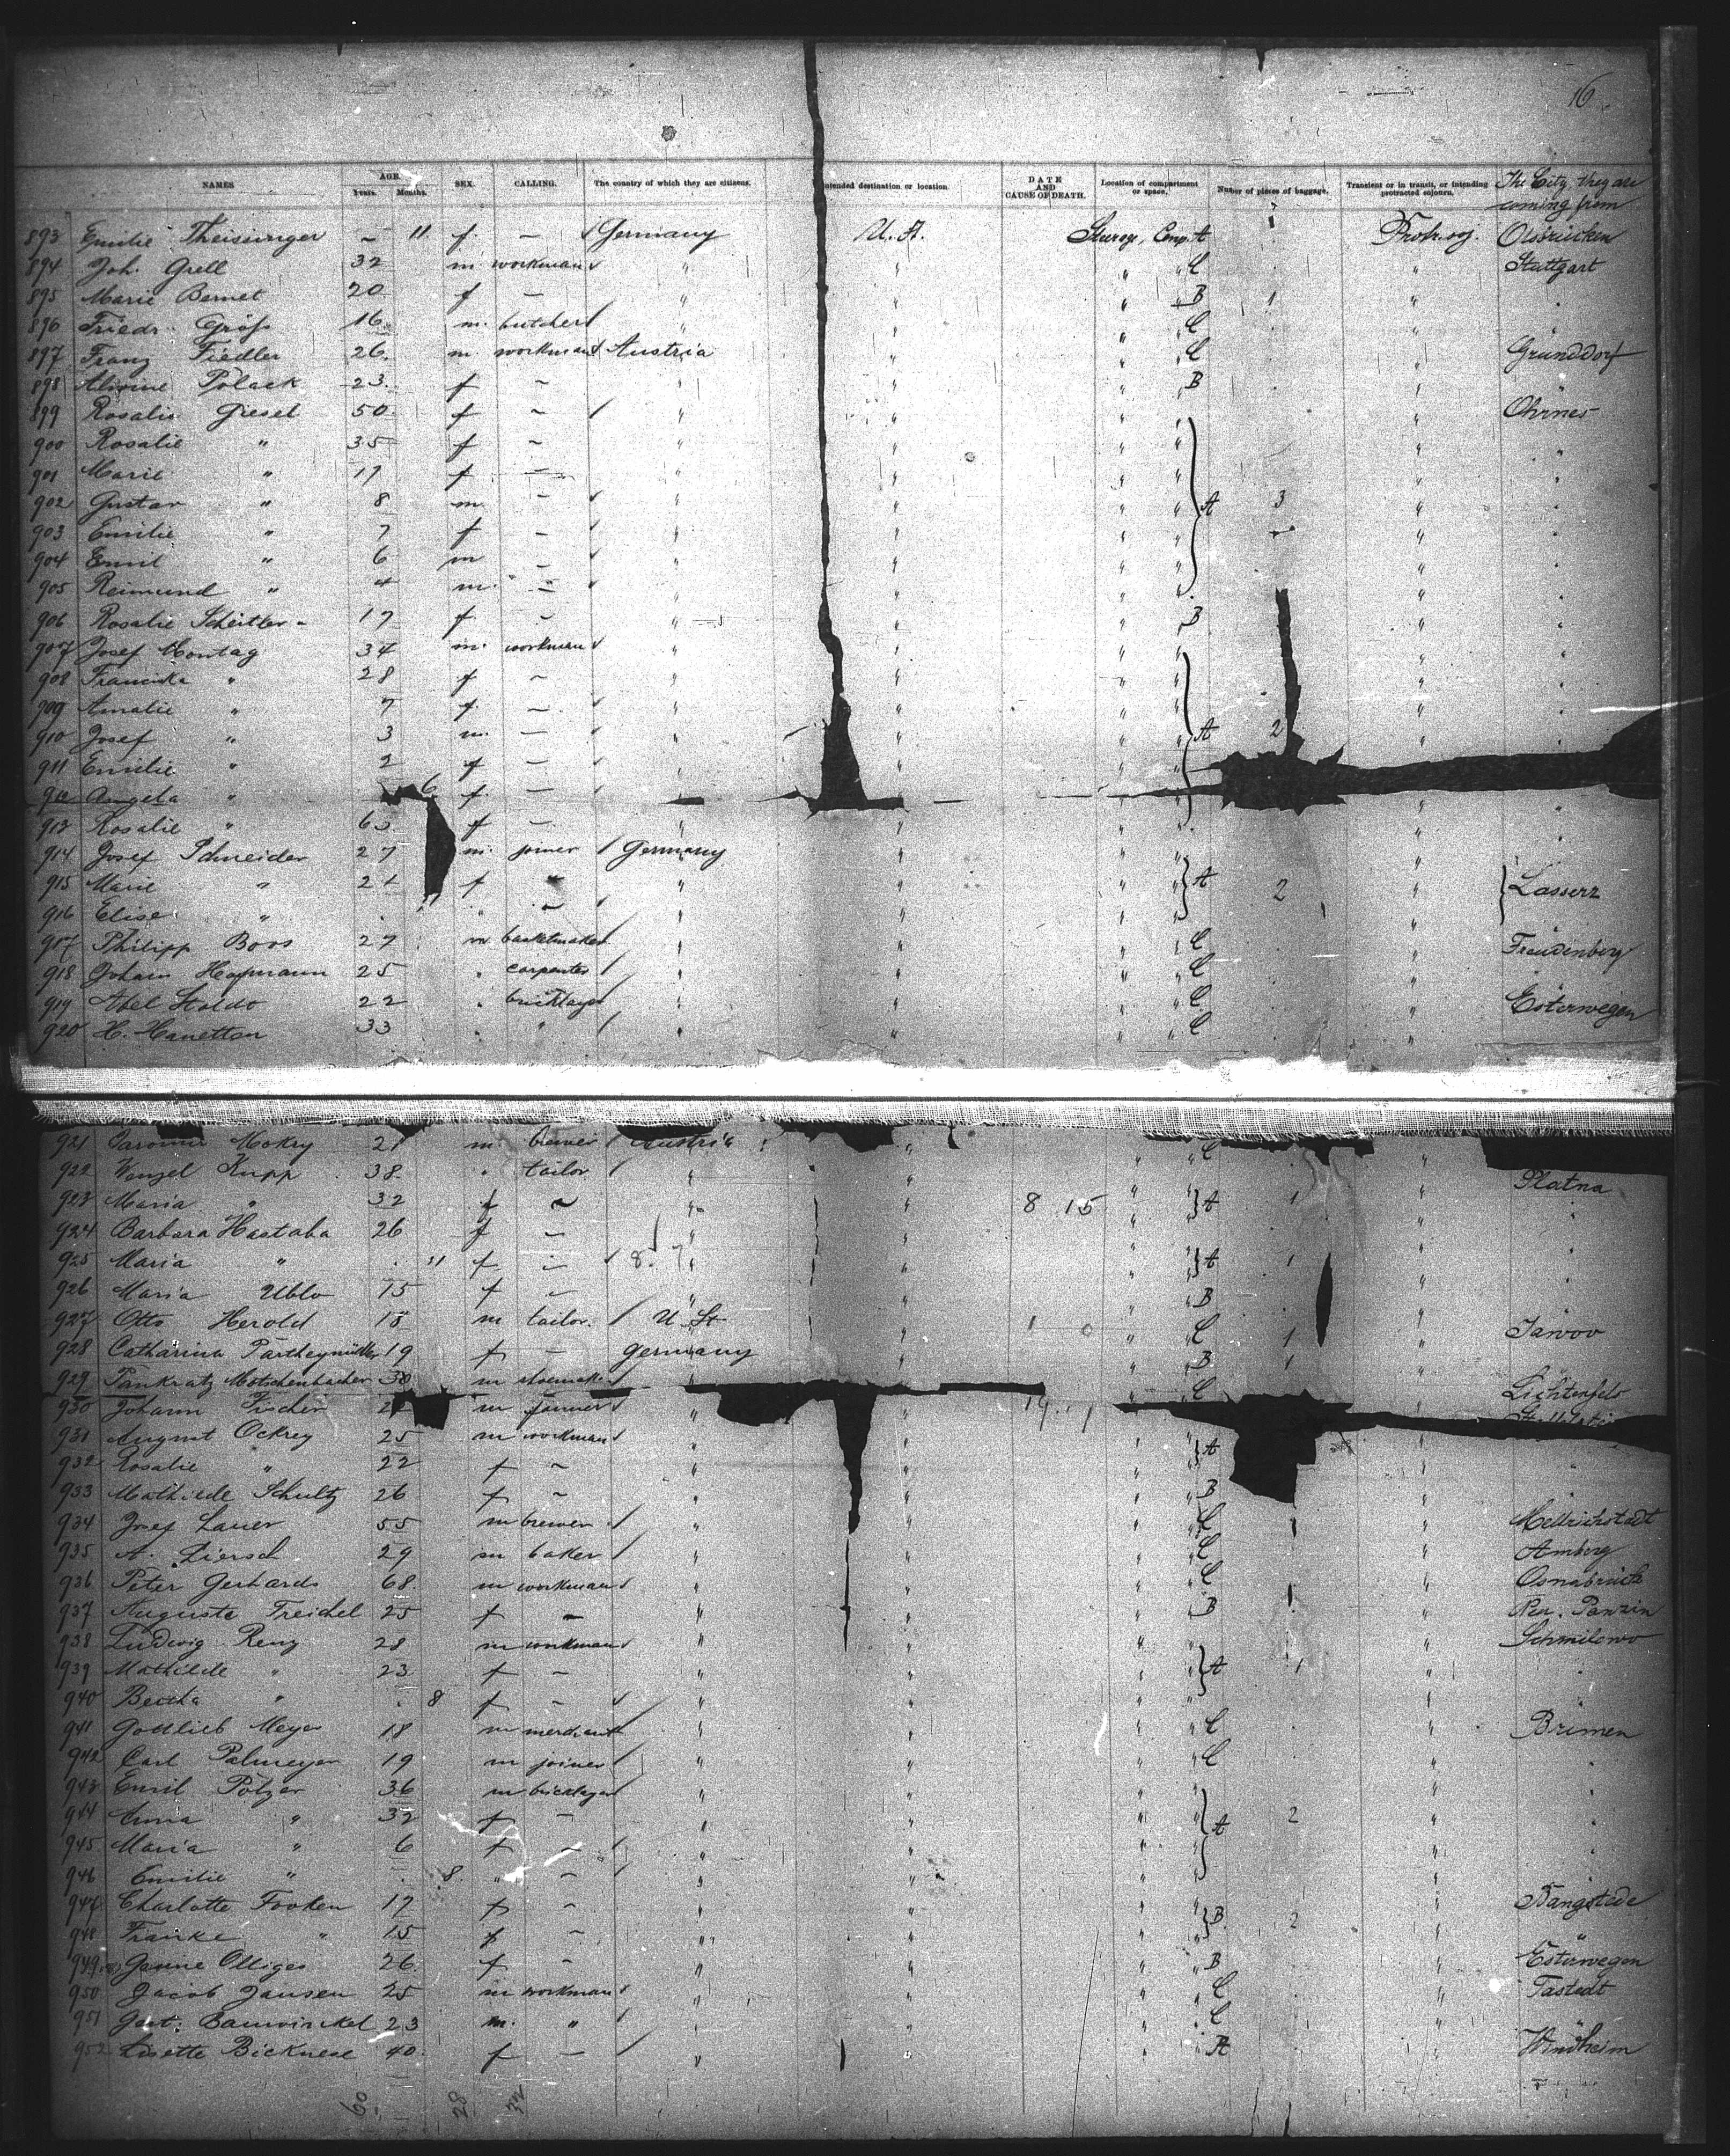 16
NAMES AGE. Years. Months. SEX. CALLING. The country of which they are citizens. intended destination or location DATE AND CAUSE OF DEATH. Location of compartment or space. Number of pieces of baggage. Transient or in transit, or intending protracted sojourn. The City they are coming from
893 Emilie Theisinger – 11 f. – Germany U. A. Steerage, Comp. A 1 Protr. soj. Olsbrücken
894 Joh. Grell 32 m workman " " " " C " Stuttgart
895 Marie Bernet 20 f – " " " " B 1 "
896 Friedr. Gröss 16 m. butcher " " " " C "
897 Franz Fiedler 26. m. workman Austria " " " C " Grunddorf
898 Alwine Polack 23. f – " " " B "
899 Rosalie Giesel 50 f – " " " " "
900 Rosalie " 35 f – " " " " "
901 Marie " 17 f – " " " " "
902 Gustav " 8 m. – " " " " A 3 "
903 Emilie " 7 f – " " " " "
904 Emil " 6 m – " " " " "
905 Reimund " 4 m. – " " " " "
906 Rosalie Scheitler 17 f. – " " " B "
907 Josef Montag 34 m. workman " " " " "
908 Franciska " 28 f – " " " " "
909 Amalie " 7 f. – " " " " "
910 Josef " 3 m. – " " " " A 2 "
911 Emilie " 2 f – " " " "
912 Angela " 6 f. – " " " " "
913 Rosalie " 63 f – " " " " "
914 Josef Schneider 27 m. joiner Germany " " " "
915 Marie " 21 f " " " " A 2 " Lasserz
916 Elise " " – " " " " "
917 Philipp Boos 27 m basketmaker " " " " C " Freudenberg
918 Johann Hofmann 25 " carpenter " " " " C "
919 Abel 22 " bricklayer " " " " C " Esterwegen
920 H. Hanetton 33 " " " " " " C "
921 Mokry 21 m. Austria " " C
922 Wenzel Kupp 38. " tailor " " " " " Platna
923 Maria " 32 f – " " 8 15 " " A 1 "
924 Barbara Hastaba 26 f – " " " " "
925 Maria " 11 f – 8. " " " A 1 "
926 Maria Ublo 15 f – " " " B "
927 Otto Herold 18 m tailor. U. St. " " " C 1 "
928 Catharina Partheymüller 19 f – Germany " " " B 1 "
929 Pankratz Motschenbacher 30 m shoemaker " " " C " Lichtenfels
930 Johann Fischer m " " " "
931 August Ockrey 25 m workman " " " " A "
932 Rosalie " 22 f – " " " " "
933 Mathilde Schultz 26 f – " " " B "
934 Josef Lauer 55 m brewer " " " " C " Mellrichstadt
935 A. Ziersch 29 m baker " " " " C " Amberg
936 Peter Gerhards 68. m workman " " " " C " Osnabrück
937 Auguste Treichel 25 f – " " " B " Panzin
938 Ludwig Renz 28 m workman " " " " " Schmilowo
939 Mathilde " 23 f – " " " " A 1 "
940 Bertha " 8 f – " " " " "
941 Gottlieb Meyer 18 m merchant " " " " C " Bremen
942 Carl Palmeyer 19 m joiner " " " " C "
943 Emil Polzer 36 m bricklayer " " " " "
944 Anna " 32 f – " " " " A 2 "
945 Maria " 6 f – " " " " "
946 Emilie " 8. " – " " " " "
947 Charlotte Fooken 17 f – " " " " Bangstede
948 Frauke " 15 f – " " " " B 2 " "
949 Gesine Olliges 26 f – " " " B " Esterwegen
950 Jacob Jansen 25 m workman " " " " C " Tastedt
951 Gert. Bauwinkel 23 m. " " " " " C "
952 Lisette Bicknese 40. f – " " " " A " Windheim
60 28 32